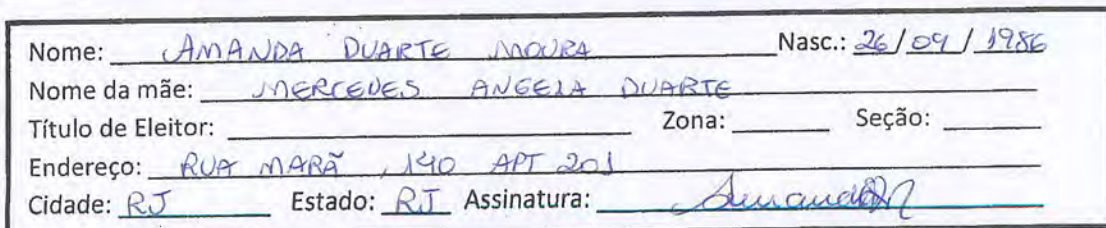 Nome: AMANDA DUARTE MOURA Nasc.: 26/09/1986
Nome da mãe: MERCEDES ANGELA DUARTE
Título de Eleitor: Zona: Seção:
Endereço: RUA MARÃ, 140 APT 201
Cidade: RJ Estado: RJ Assinatura: